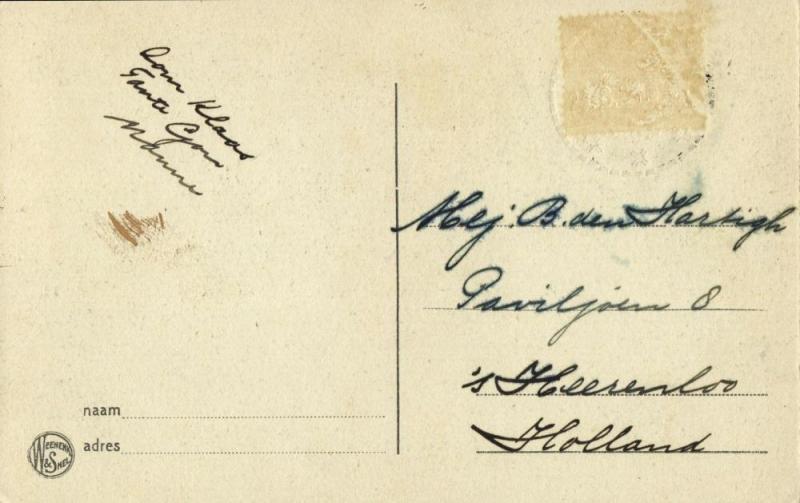 Oom Klaas
Tante Cor
Manne
Mej. B. den Hartigh
Paviljoen 8
's Heerenloo
Holland
naam
adres
WEENENK
& SNEL